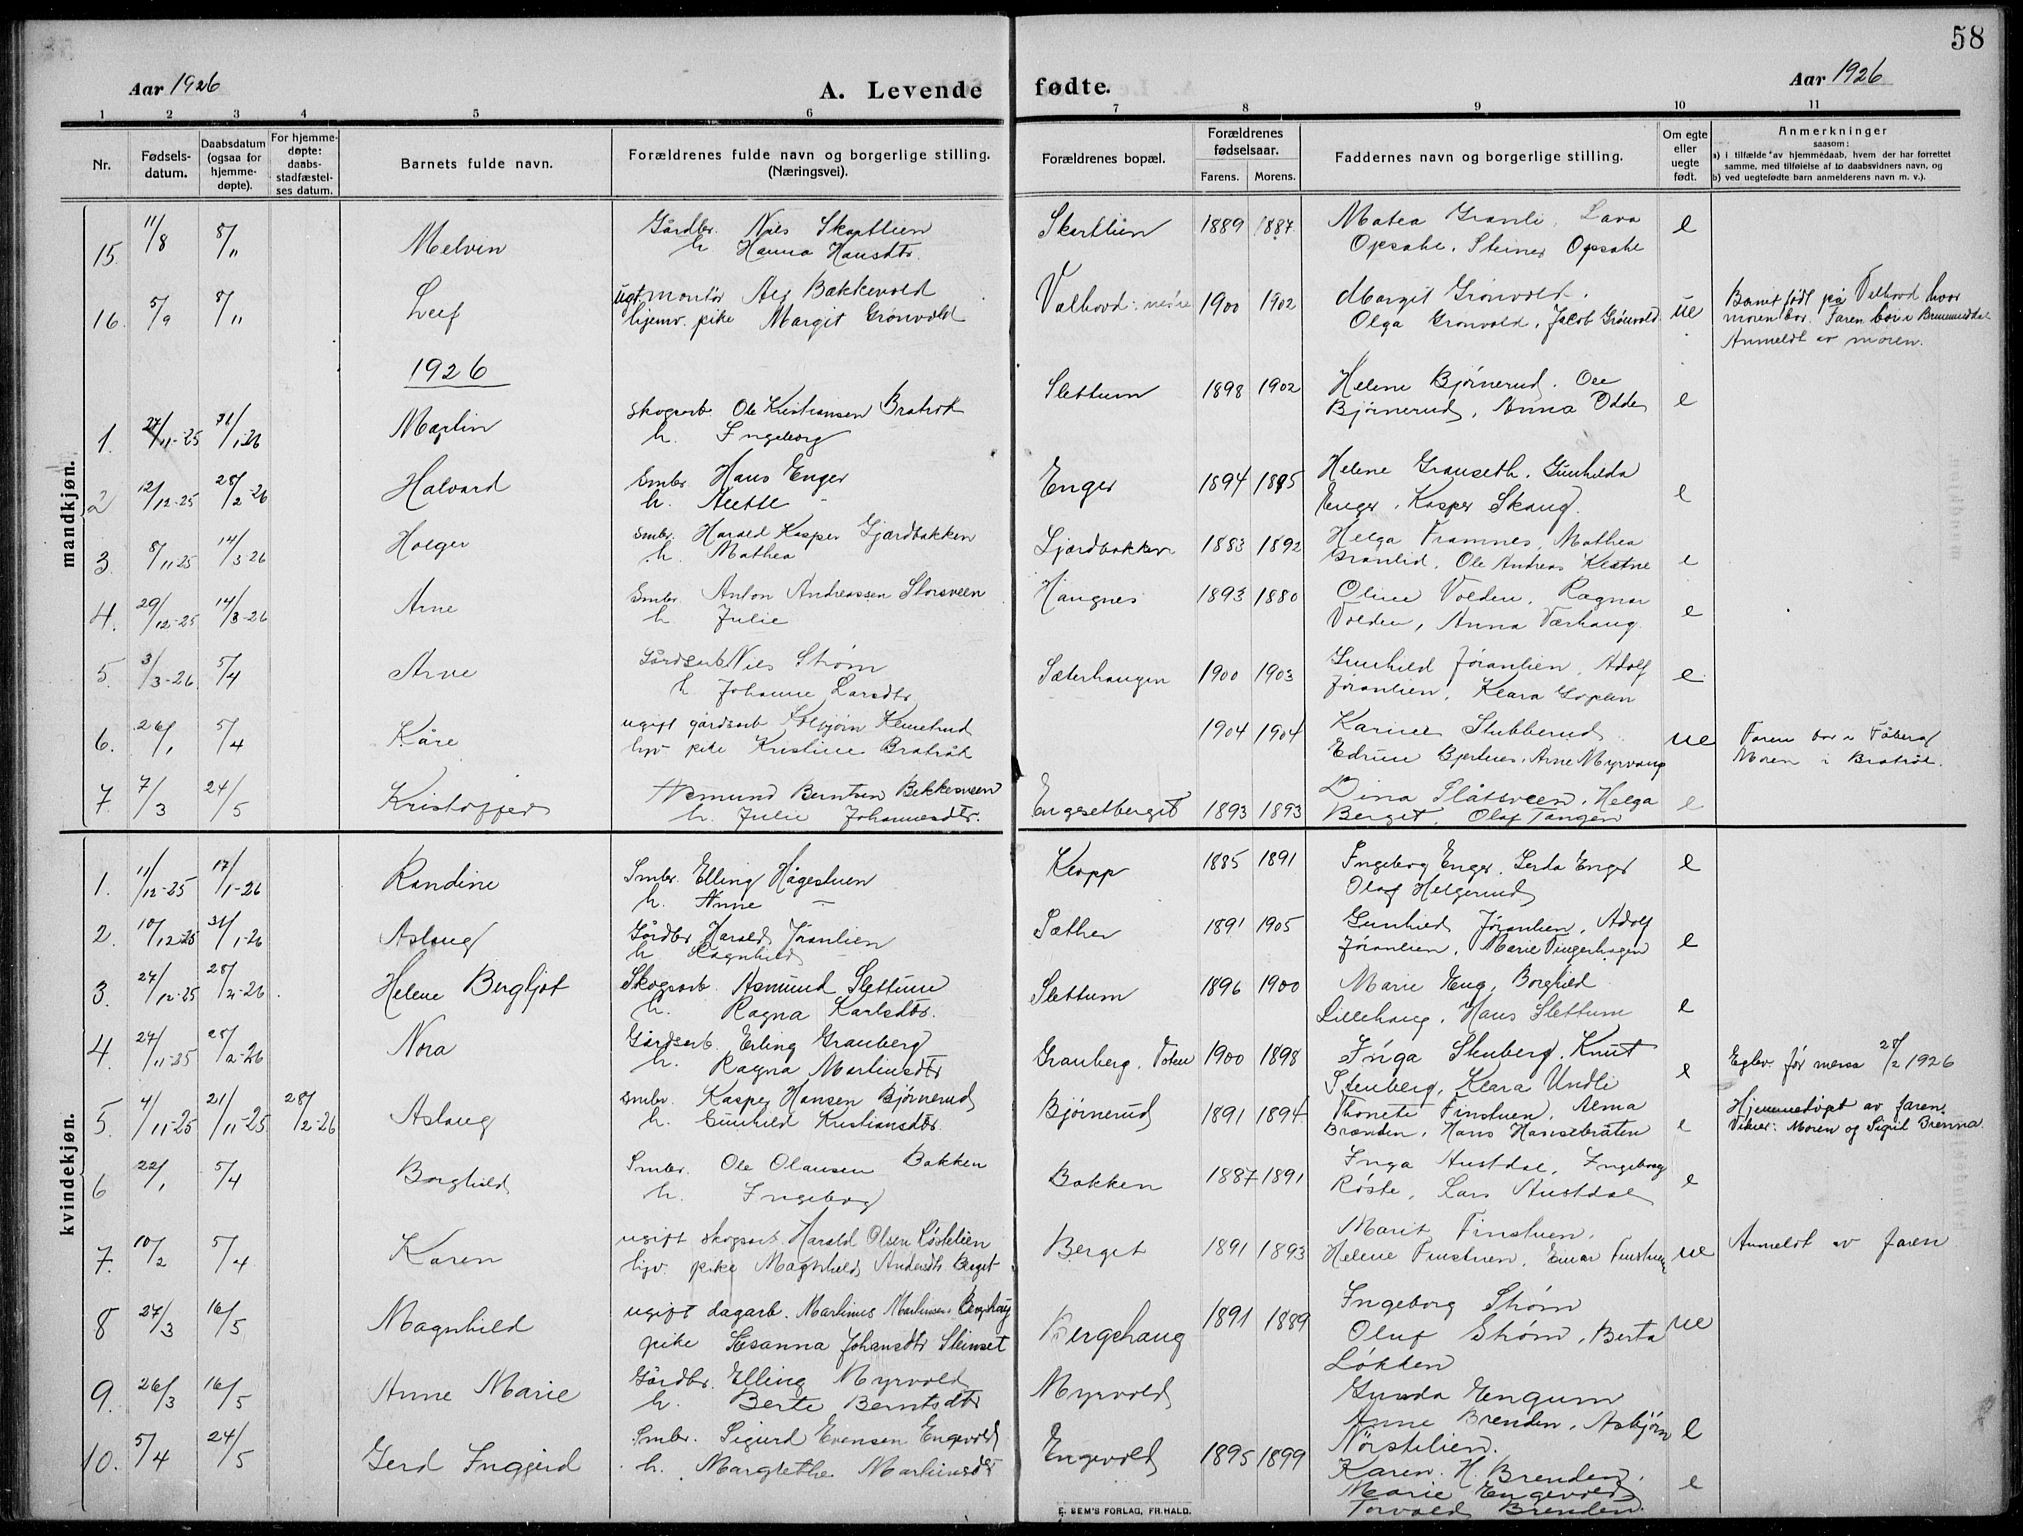 58
Aar 1926
A. Levende fødte.
Aar 1926
1 2 3 4 5 6 7 8 9 10 11
Nr.
Fødsels-
datum.
Daabsdatum
(ogsaa for
hjemme-
døpte).
For hjemme-
døpte:
daabs-
stadfæstel-
ses datum.
Barnets fulde navn.
Forældrenes fulde navn og borgerlige stilling.
(Næringsvei).
Forældrenes bopæl.
Forældrenes
fødselsaar.
Farens. Morens.
Faddernes navn og borgerlige stilling.
Om egte
eller
uegte
født.
Anmerkninger
saasom:
a) i tilfælde av hjemmedaab, hvem der har forrettet
samme, med tilføielse af to daabsvidners navn, og
b) ved uegtefødte barn anmelderens navn m. v.).
mandkjøn.
15. 11/8 8/11 Melvin
Gårdbr. Nils Skartlien
h. Hanna Hansdtr.
Skartlien 1889 1887
Matea Granli, Lava
Opsahl, Steinar Opsahl
e
16. 5/9 8/11 Leif
ugt. montør Alf Bakkevold
hjemv. pike Margit Grønvold
Valhovd 1900 1902
Margit Grønvold.
Olga Grønvold, Jacob Grønvold
ue
Barnet født på Velhovd hvor
moren bor. Faren bor i Brumunddal
Anmeldt av moren.
1926
1. 27/11-25 31/1-26 Martin
skogsarb. Ole Kristiansen Bratråk
h. Ingeborg
Slettum 1898 1902
Helene Bjørnerud. Ole
Bjørnerud, Anna Odde
e
2 12/12-25 28/2-26 Halvard
Smbr. Hans Enger
h. Anette -
Enger 1894 1895
Helene Granseth, Gunhilda
Enger, Kasper Skaug.
e
3. 8/11 25 14/3-26 Holger
smbr. Harald Kasper Gjærdbakken
h. Mathea
Gjærdbakken 1883 1892
Helga Framnes, Mathea
Granlid, Ole Andreas Kletne
e
4. 29/12-25 14/3-26 Arne
Smbr. Anton Andreassen Storsveen
h. Julie
Haugnes 1893 1880
Oline Volden, Ragnar
Volden, Anna Værhaug.
e
5. 3/3-26 5/4 Arve
Gårdsarb Nils Strøm
h Johanne Larsdtr
Sæterhaugen 1900 1903
Gunhild Jøranlien, Adolf
Jøranlien, Klara Goplen
e
6. 26/1 5/4 Kåre
ugift gårdsarb Kolbjørn Klemetrud
hjv. pike Kristine Bratråk
1904 1904
Karine Stubberud
Edrune Bjertnes, Arne Myrvang
ue
Faren bor i Fåberg
Moren i Bratråk.
7. 7/3 24/5 Kristoffer
Asmund Berntsen Bekkemoen
h. Julie Johannesdtr.
Engesetberget 1893 1893
Dina Slåtsveen, Helga
Berget, Olaf Tangen
e
kvindekjøn.
1. 11/12-25 17/1-26 Randine
Smbr. Elling Hågestuen
h. Anne -
Klopp 1885 1891
Ingeborg Enger, Gerda Enger
Olaf Helgerud
e
2. 10/12-25 31/1-26 Aslaug
Gårdbr Harald Jøranlien
h. Ragnhild
Sæther 1891 1905
Gunhild Jøranlien, Adolf
Jøranlien, Marie Fingerhagen
e
3. 24/12-25 28/2-26 Helene Bergljot
Skogsarb. Asmund Slettum
h. Ragna Karlsdtr.
Slettum 1896 1900
Marie Eng, Borghild
Lillehaug, Hans Slettum
e
4. 24/11-25 28/2-26 Nora
Gårdsarb. Erling Granberg
h. Ragna Martinsdtr
Granberg, Toten 1900 1898
Inga Stenberg, Knut
Stenberg, Klara Undli
e
28/2 1926
5. 4/11-25 21/11-25 28/2-26 Aslaug
smbr. Kasper Hansen Bjørnerud
h. Gunhild Kristiansdtr.
Bjørnerud 1891 1894
Thonete Finstuen, Alma
Brænden, Hans Hansebråten
e
Hjemmedøpt av faren.
Vidner: Moren og Sigrid Brenna.
6 22/1 5/4 Borghild
Smbr. Ole Olausen Bakken
h. Ingeborg
Bakken 1887 1891
Inga Austdal, Ingeborg
Røste, Lars Austdal
e
7. 10/2 5/4 Karen
ugift skogsarb Harald Olsen Løstelien
hjv. pike Magnhild Andersdtr Berget
Berget 1891 1893
Marit Finstuen,
Helene Finstuen, Einar Finstuen
ue
Anmeldt av faren
8 27/3 16/5 Magnhild
ugift dagarb. Martinus Martinsen Bergshaug
pike Susanna Johansdtr Steinset
Bergshaug 1891 1889
Ingeborg Strøm
Oluf Strøm, Berta
Løkken
ue
9. 26/3 16/5 Anne Marie
Gårdbr. Elling Myrvold
h. Berte Berntsdtr
Myrvold
Gunda Engum
Anne Brenden, Asbjørn
Nørstelien.
e
10. 5/4 24/5 Gerd Inggjerd
Smbr. Sigurd Evensen Engevold
h. Margrethe Martinsdtr
Engevold 1895 1899
Karen H. Brenden,
Marie Engevold
Torvald Brenden.
e
E. SEM'S FORLAG, FR.HALD.